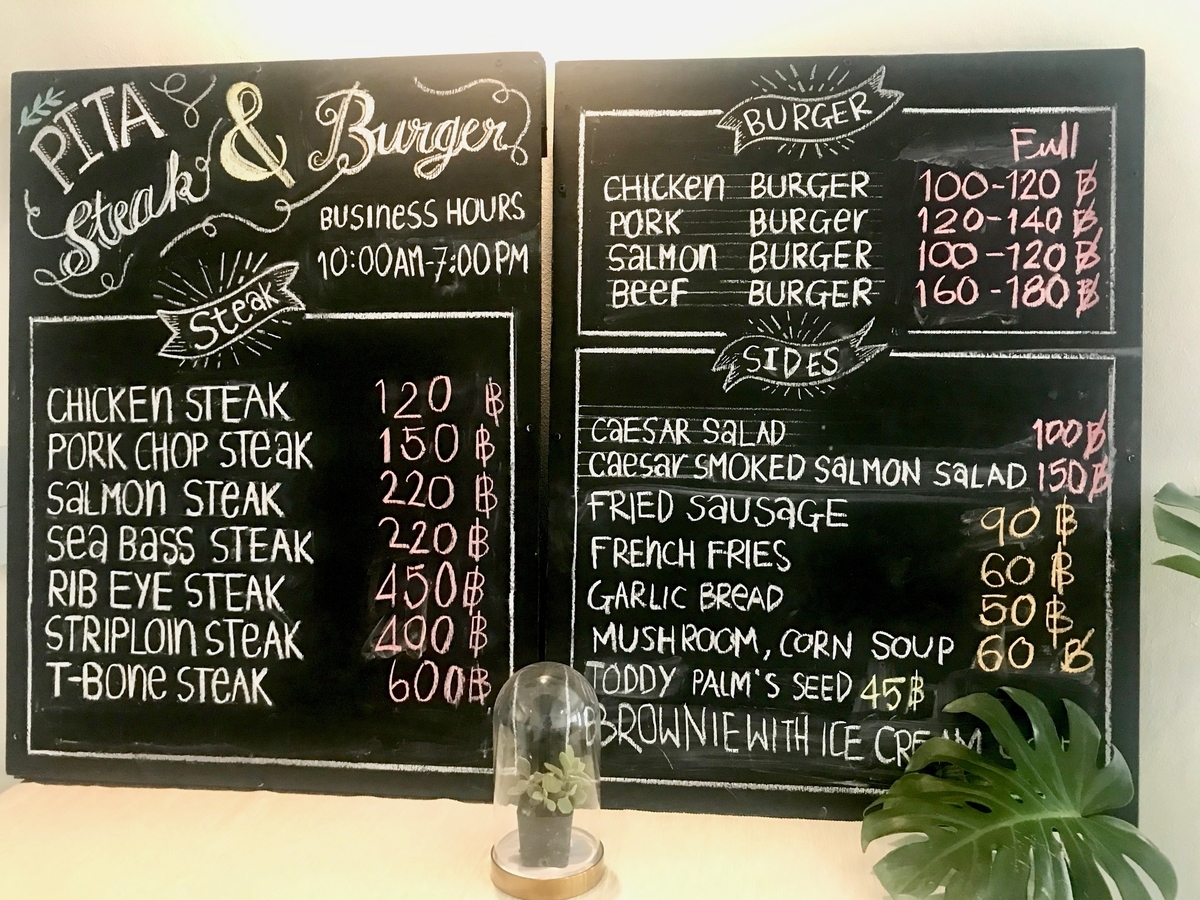 PITA
Steak & Burger
BUSINESS HOURS
10:00AM-7:00PM
Steak
CHICKEN STEAK 120 ฿
PORK CHOP STEAK 150 ฿
SALMON STEAK 220 ฿
SEA BASS STEAK 220 ฿
RIB EYE STEAK 450 ฿
STRIPLOIN STEAK 400 ฿
T-BONE STEAK 600 ฿
BURGER
Full
CHICKEN BURGER 100-120 ฿
PORK BURGER 120-140 ฿
SALMON BURGER 100-120 ฿
BEEF BURGER 160-180 ฿
SIDES
CAESAR SALAD 100 ฿
CAESAR SMOKED SALMON SALAD 150 ฿
FRIED SAUSAGE 90 ฿
FRENCH FRIES 60 ฿
GARLIC BREAD 50 ฿
MUSHROOM, CORN SOUP 60 ฿
TODDY PALM'S SEED 45฿
BROWNIE WITH ICE CREAM